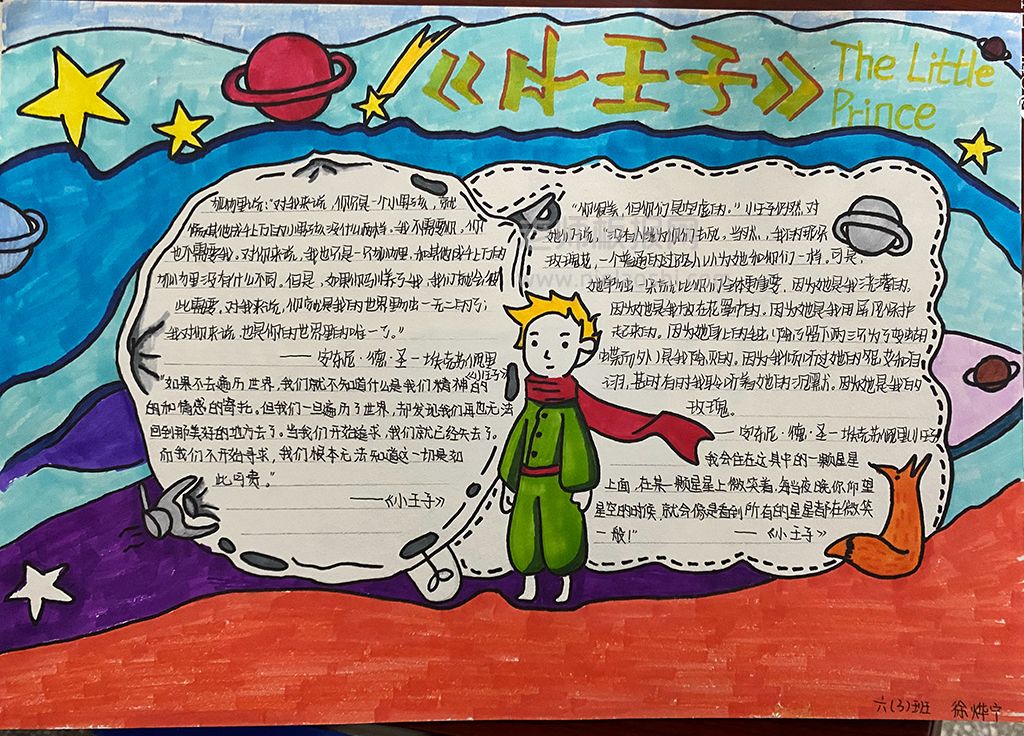 《小王子》
The Little
Prince
狐狸说:“对我来说,你只是一个小男孩,就
像其他成千上万个小男孩没什么两样。我不需要你,你
也不需要我。对你来说,我也只是一只狐狸,和其他成千上万的
狐狸没有什么不同。但是,如果你驯养了我,我们就会彼
此需要。对我来说,你就是我的世界里独一无二的了;
我对你来说,也是你的世界里的唯一了。”
——安东尼·德·圣-埃克苏佩里
《小王子》
“如果不去遍历世界,我们就不知道什么是我们精神的
和情感的寄托。但我们一旦遍历了世界,却发现我们再也无法
回到那美好的地方去了。当我们开始寻求,我们就已经失去了。
而我们不开始寻求,我们根本无法知道这一切是如
此可贵。”
——《小王子》
“你很美,但你们是空虚的。”小王子仍然对
她们说,“没有人能为你们去死。当然,我的那朵
玫瑰花,一个普通的过路人以为她和你们一样,可是,
她单独一朵就比你们全体更重要,因为她是我浇灌的。
因为她是我放在花罩中的。因为她是我用屏风保护
起来的。因为她身上的毛虫(除了留下两三只为了变蝴蝶
而外)是我除灭的。因为我倾听过她的怨艾和自
诩,甚至有时我聆听着她的沉默。因为她是我的
玫瑰。
——安东尼·德·圣-埃克苏佩里《小王子》
我会住在这其中的一颗星星
上面,在某一颗星星上微笑着,每当夜晚你仰望
星空的时候,就会像是看到所有的星星都在微笑
一般!”——《小王子》
六(3)班 徐烨宁